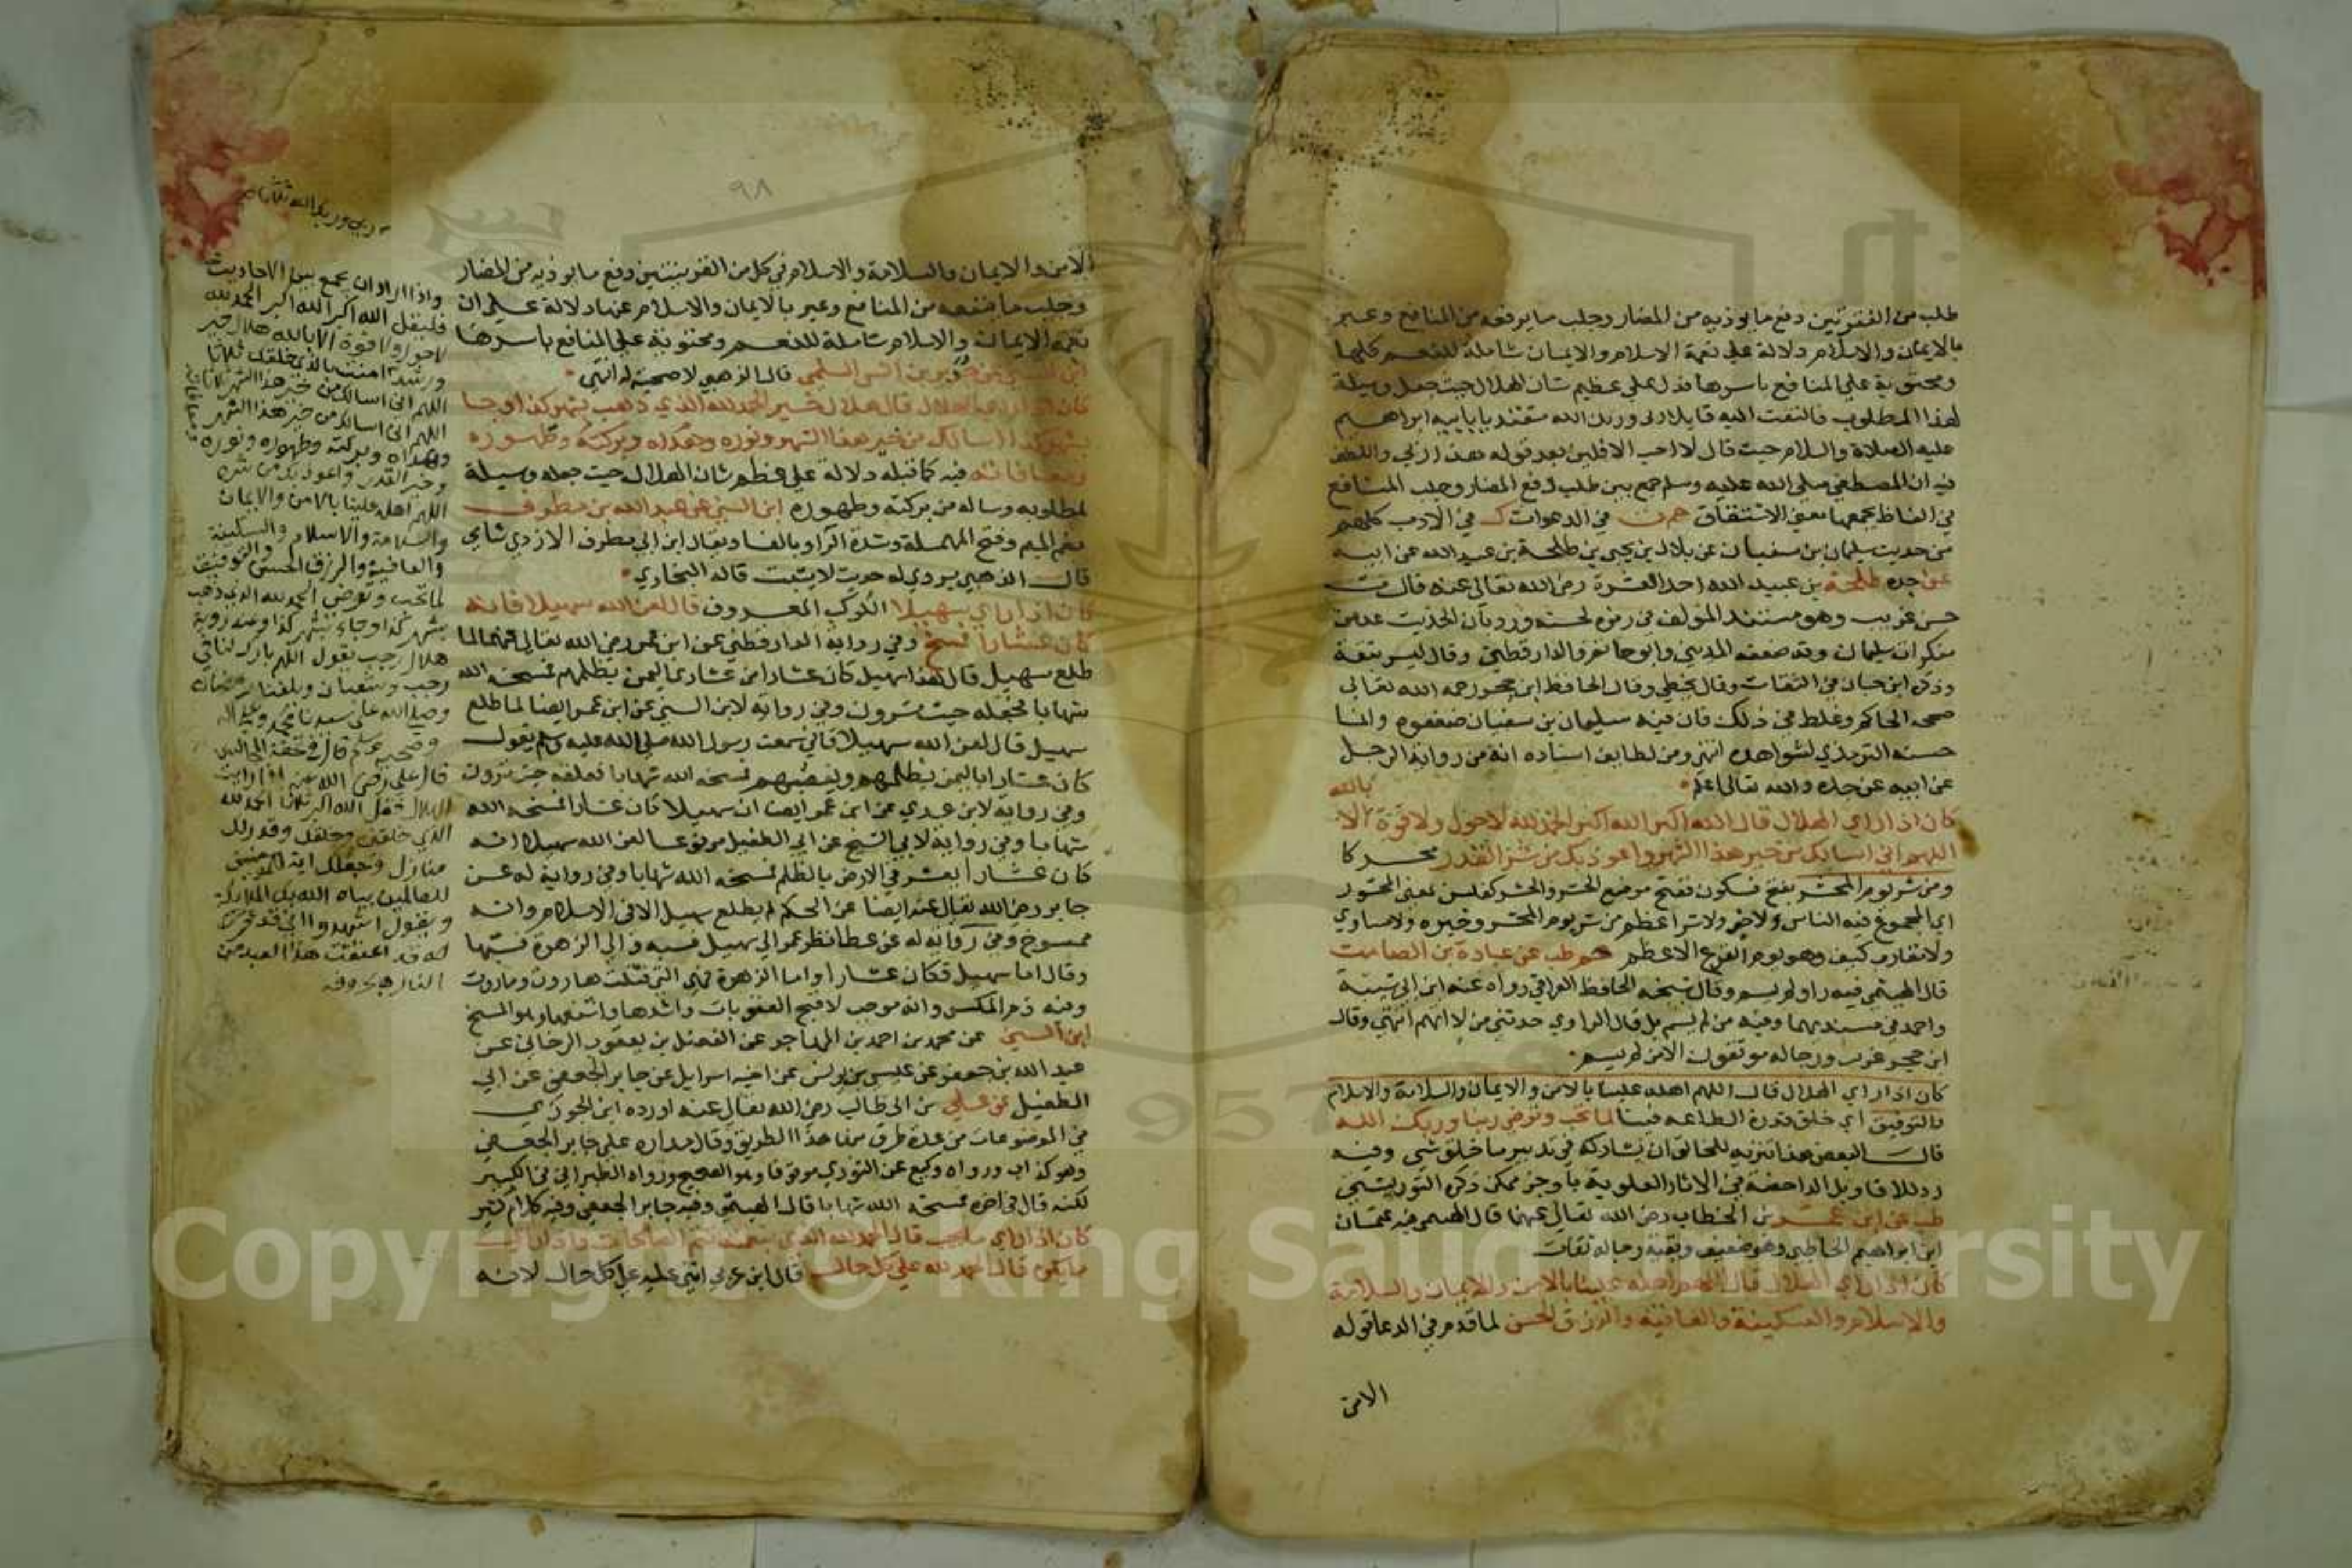 طلب من الفقرتين دفع ما يوذيه من المضار وجلب ما يرفقه من المنافع وعبر
بالايمان والاسلام دلالة على نعمة الاسلام والايمان شاملة للنعم كلها
ومحتوية على المنافع باسرها فدل على عظيم شان الهلال حيث جعل وسيلة
لهذا المطلوب فالتفت اليه قايلا ربى وربك الله مقتديا بابيه ابراهيم
عليه الصلاة والسلام حيث قال لا احب الافلين بعد قوله هذا ربي واللطف
فيه ان المصطفى صلى الله عليه وسلم جمع بين طلب دفع المضار وجلب المنافع
في الفاظ يجمعها معنى الاشتقاق حم ت في الدعوات ك في الادب كلهم
من حديث سليمان بن سفيان عن بلال بن يحيى بن طلحة بن عبيد الله عن ابيه
عن جده طلحة بن عبيد الله احد العشرة رضي الله تعالى عنه قال ت
حسن غريب وهو مستند المولف في رمزه لحسنه ورد بان الحديث عد من
منكرات سليمان وقد ضعفه المديني وابو حاتم والدارقطني وقال ليس بثقة
وذكره ابن حبان في الثقات وقال يخطي وقال الحافظ ابن حجر رحمه الله تعالى
صححه الحاكم وغلط في ذلك فان فيه سليمان بن سفيان ضعفوه وانما
حسنه الترمذي لشواهده انتهى ومن لطايف اسناده انه من رواية الرجل
عن ابيه عن جده والله تعالى اعلم
بالله
كان اذا راي الهلال قال الله اكبر الله اكبر الحمد لله لا حول ولا قوة الا
اللهم اني اسالك من خير هذا الشهر واعوذ بك من شر القدر محركا
ومن شر يوم المحشر بفتح فسكون ففتح موضع الحشر والحشر كفلس بمعنى المحشور
اي المجموع فيه الناس ولا خير ولا شر اعظم من شر يوم المحشر وخيره ولا مساوي
ولا مقارب كيف وهو يوم الفزع الاعظم حم طب عن عبادة بن الصامت
قال الهيثمي فيه راو لم يسم وقال شيخه الحافظ العراقي رواه عنه ابن ابي شيبة
واحمد في مسنديهما وفيه من لم يسم بل قال الراوي حدثني من لا اتهم انتهى وقال
ابن حجر غريب ورجاله موثقون الا من لم يسم
كان اذا راي الهلال قال اللهم اهله علينا بالامن والايمان والسلامة والاسلام
والتوفيق اي خلق قدرة الطاعه فينا لما تحب وترضى ربنا وربك الله
قال البعض هذا تنزيه للخالق ان يشاركه في تدبير ما خلق شي وفيه
رد للاقاويل الداحضة في الاثار العلوية باوجز ممكن ذكره التوربشتي
طب عن ابن عمر بن الخطاب رضي الله تعالى عنهما قال الهيثمي فيه عثمان
ابن ابراهيم الحاطبي وهو ضعيف وبقية رجاله ثقات
كان اذا راي الهلال قال اللهم اهله علينا بالامن والايمان والسلامة
والاسلام والسكينة والعافية والرزق الحسن لما قدم في الدعا قوله
الامن
٩٨
الامن والايمان والسلامة والاسلام في كل من الفقرتين دفع ما يوذيه من المضار
وجلب ما ينفعه من المنافع وعبر بالايمان والاسلام عنها دلالة على ان
نعمة الايمان والاسلام شاملة للنعم ومحتوية على المنافع باسرها
ابن السني عن حدير بن انس السلمي قال الزهبي لا صحبة له انتهى
كان اذا راي الهلال قال هلال خير الحمد لله الذي ذهب بشهر كذا وجا
بشهر كذا اسالك من خير هذا الشهر ونوره وهداه وبركته وطهوره
ومعافاته فيه كما قبله دلالة على عظم شان الهلال حيث جعله وسيلة
لمطلوبه وساله من بركته وطهوره ابن السني عن عبد الله بن مطرف
بضم الميم وفتح المهملة وشدة الرا وبالفا ويقال ابن ابي مطرف الازدي شامي
قال الذهبي يروي له حديث لا يثبت قاله البخاري
كان اذا راي سهيلا الكوكب المعروف قال لعن الله سهيلا فانه
كان عشارا فمسخ وفي رواية الدارقطني عن ابن عمر رضي الله تعالى عنهما لما
طلع سهيل قال هذا سهيل كان عشارا من عشاري اليمن يظلمهم فمسخه الله
شهابا فجعله حيث ترون وفي رواية لابن السني عن ابن عمر ايضا لما طلع
سهيل قال لعن الله سهيلا فاني سمعت رسول الله صلى الله عليه وسلم يقول
كان عشارا باليمن يظلمهم ويغصبهم فمسخه الله شهابا فعلقه حيث ترون
وفي رواية لابن عدي عن ابن عمر ايضا ان سهيلا كان عشارا فمسخه الله
شهابا وفي رواية لابي الشيخ عن ابي الطفيل مرفوعا لعن الله سهيلا انه
كان عشارا يعشر في الارض بالظلم فمسخه الله شهابا وفي رواية له عن
جابر رضي الله تعالى عنه ايضا عن الحكم لم يطلع سهيل الا في الاسلام وانه
ممسوخ وفي رواية له عن عطا نظر عمر الى سهيل فسبه والى الزهرة فسبها
وقال اما سهيل فكان عشارا واما الزهرة فهي التي فتنت هاروت وماروت
وفيه ذم المكس وانه موجب لاقبح العقوبات واشدها واشنعها وهو المسخ
ابن السني عن محمد بن احمد بن المهاجر عن الفضل بن يعقوب الرخاي عن
عبد الله بن جعفر عن عيسى بن يونس عن اخيه اسرايل عن جابر الجعفي عن ابي
الطفيل عن علي بن ابي طالب رضي الله تعالى عنه اورده ابن الجوزي
في الموضوعات من عدة طرق منها هذا الطريق وقال مداره على جابر الجعفي
وهو كذاب ورواه وكيع عن الثوري موقوفا وهو الصحيح ورواه الطبراني في الكبير
لكنه قال في اخره فمسخه الله شهابا قال الهيثمي وفيه جابر الجعفي وفيه كلام كثير
كان اذا راي ما يحب قال الحمد لله الذي بنعمته تتم الصالحات واذا راي
ما يكره قال الحمد لله على كل حال قال ابن عربي اثنى عليه على كل حال لانه
ربي وربك الله
واذا اراد ان يجمع بين الاحاديث
فليقل الله اكبر الله اكبر الحمد لله
لا حول ولا قوة الا بالله هلال خير
ورشد امنت بالذي خلقك ثلاثا
اللهم اني اسالك من خير هذا الشهر
اللهم اني اسالك من خير هذا الشهر
وهداه وبركته وطهوره ونوره
وخير القدر واعوذ بك من شره
اللهم اهله علينا بالامن والايمان
والسلامة والاسلام والسكينة
والعافية والرزق الحسن والتوفيق
لما تحب وترضى الحمد لله الذي ذهب
بشهر كذا وجاء بشهر كذا وعند روية
هلال رجب يقول اللهم بارك لنا في
رجب وشعبان وبلغنا رمضان
وصلى الله على سيدنا محمد وعلى اله
وصحبه وسلم قال في
قال علي رضي الله عنه اذا رايت
الهلال فقل الله اكبر ثلاثا الحمد لله
الذي خلقني وخلقك وقدر لك
منازل وجعلك اية
للعالمين يباهي الله بك الملايكة
ويقول اشهدوا اني قد
قد اعتقت هذا العبد من
النار
Copyright © King Saud University
957